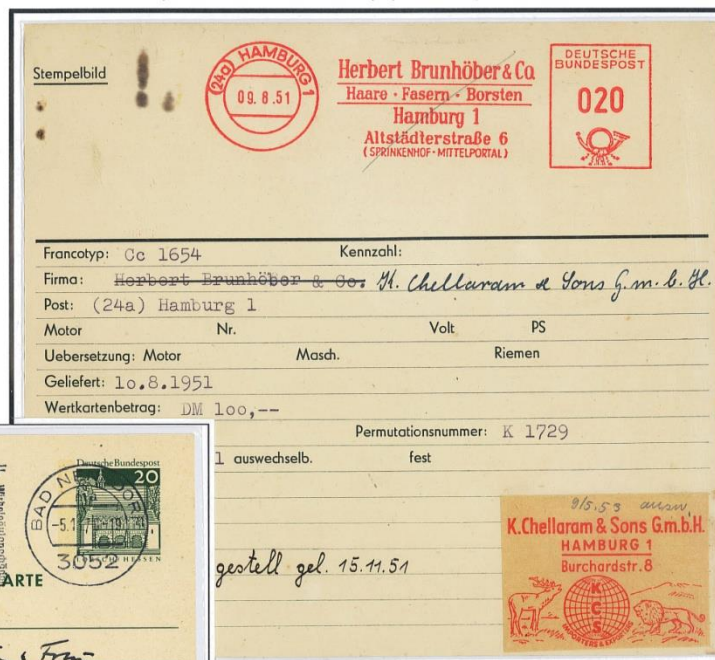 Stempelbild
(24a) HAMBURG 1
09.8.51
Herbert Brunhöber & Co.
Haare · Fasern · Borsten
Hamburg 1
Altstädterstraße 6
(SPRINKENHOF-MITTELPORTAL)
DEUTSCHE
BUNDESPOST
020
Francotyp: Cc 1654 Kennzahl:
Firma: Herbert Brunhöber & Co. K. Chellaram & Sons G.m.b.H.
Post: (24a) Hamburg 1
Motor Nr. Volt PS
Uebersetzung: Motor Masch. Riemen
Geliefert: 10.8.1951
Wertkartenbetrag: DM 100,--
Permutationsnummer: K 1729
1 auswechselb. fest
gestell gel. 15.11.51
9/5.53 ausw.
K.Chellaram & Sons G.m.b.H.
HAMBURG 1
Burchardstr. 8
K
C
S
IMPORTERS & EXPORTERS
Deutsche Bundespost
20
BAD NENNDORF
3052
HESSEN
ARTE
Frau